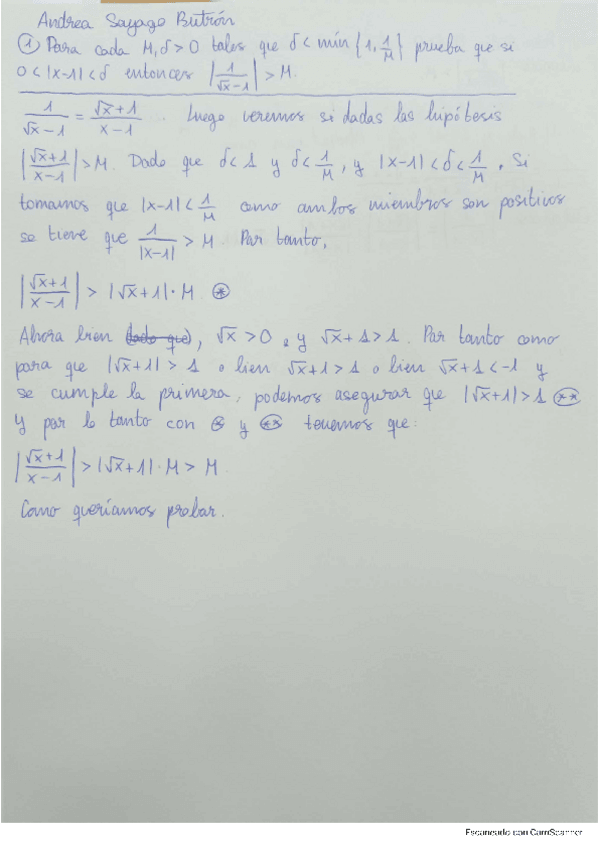 Andrea Sayago Butrón
① Para cada M, δ > 0 tales que δ < mín {1, 1/M} prueba que si
0 < |x-1| < δ entonces |1/(√x - 1)| > M.
1/(√x - 1) = (√x + 1)/(x - 1) . Luego veremos si dadas las hipótesis
|(√x + 1)/(x - 1)| > M. Dado que δ < 1 y δ < 1/M, y |x-1| < δ < 1/M. Si
tomamos que |x-1| < 1/M como ambos miembros son positivos
se tiene que 1/|x-1| > M. Por tanto,
|(√x + 1)/(x - 1)| > |√x + 1| · M ⊛
Ahora bien (dado que), √x > 0, y √x + 1 > 1. Por tanto como
para que |√x + 1| > 1 o bien √x + 1 > 1 o bien √x + 1 < -1 y
se cumple la primera, podemos asegurar que |√x + 1| > 1 (**)
Y por lo tanto con ⊛ y (**) tenemos que:
|(√x + 1)/(x - 1)| > |√x + 1| · M > M
Como queríamos probar.
Escaneado con CamScanner